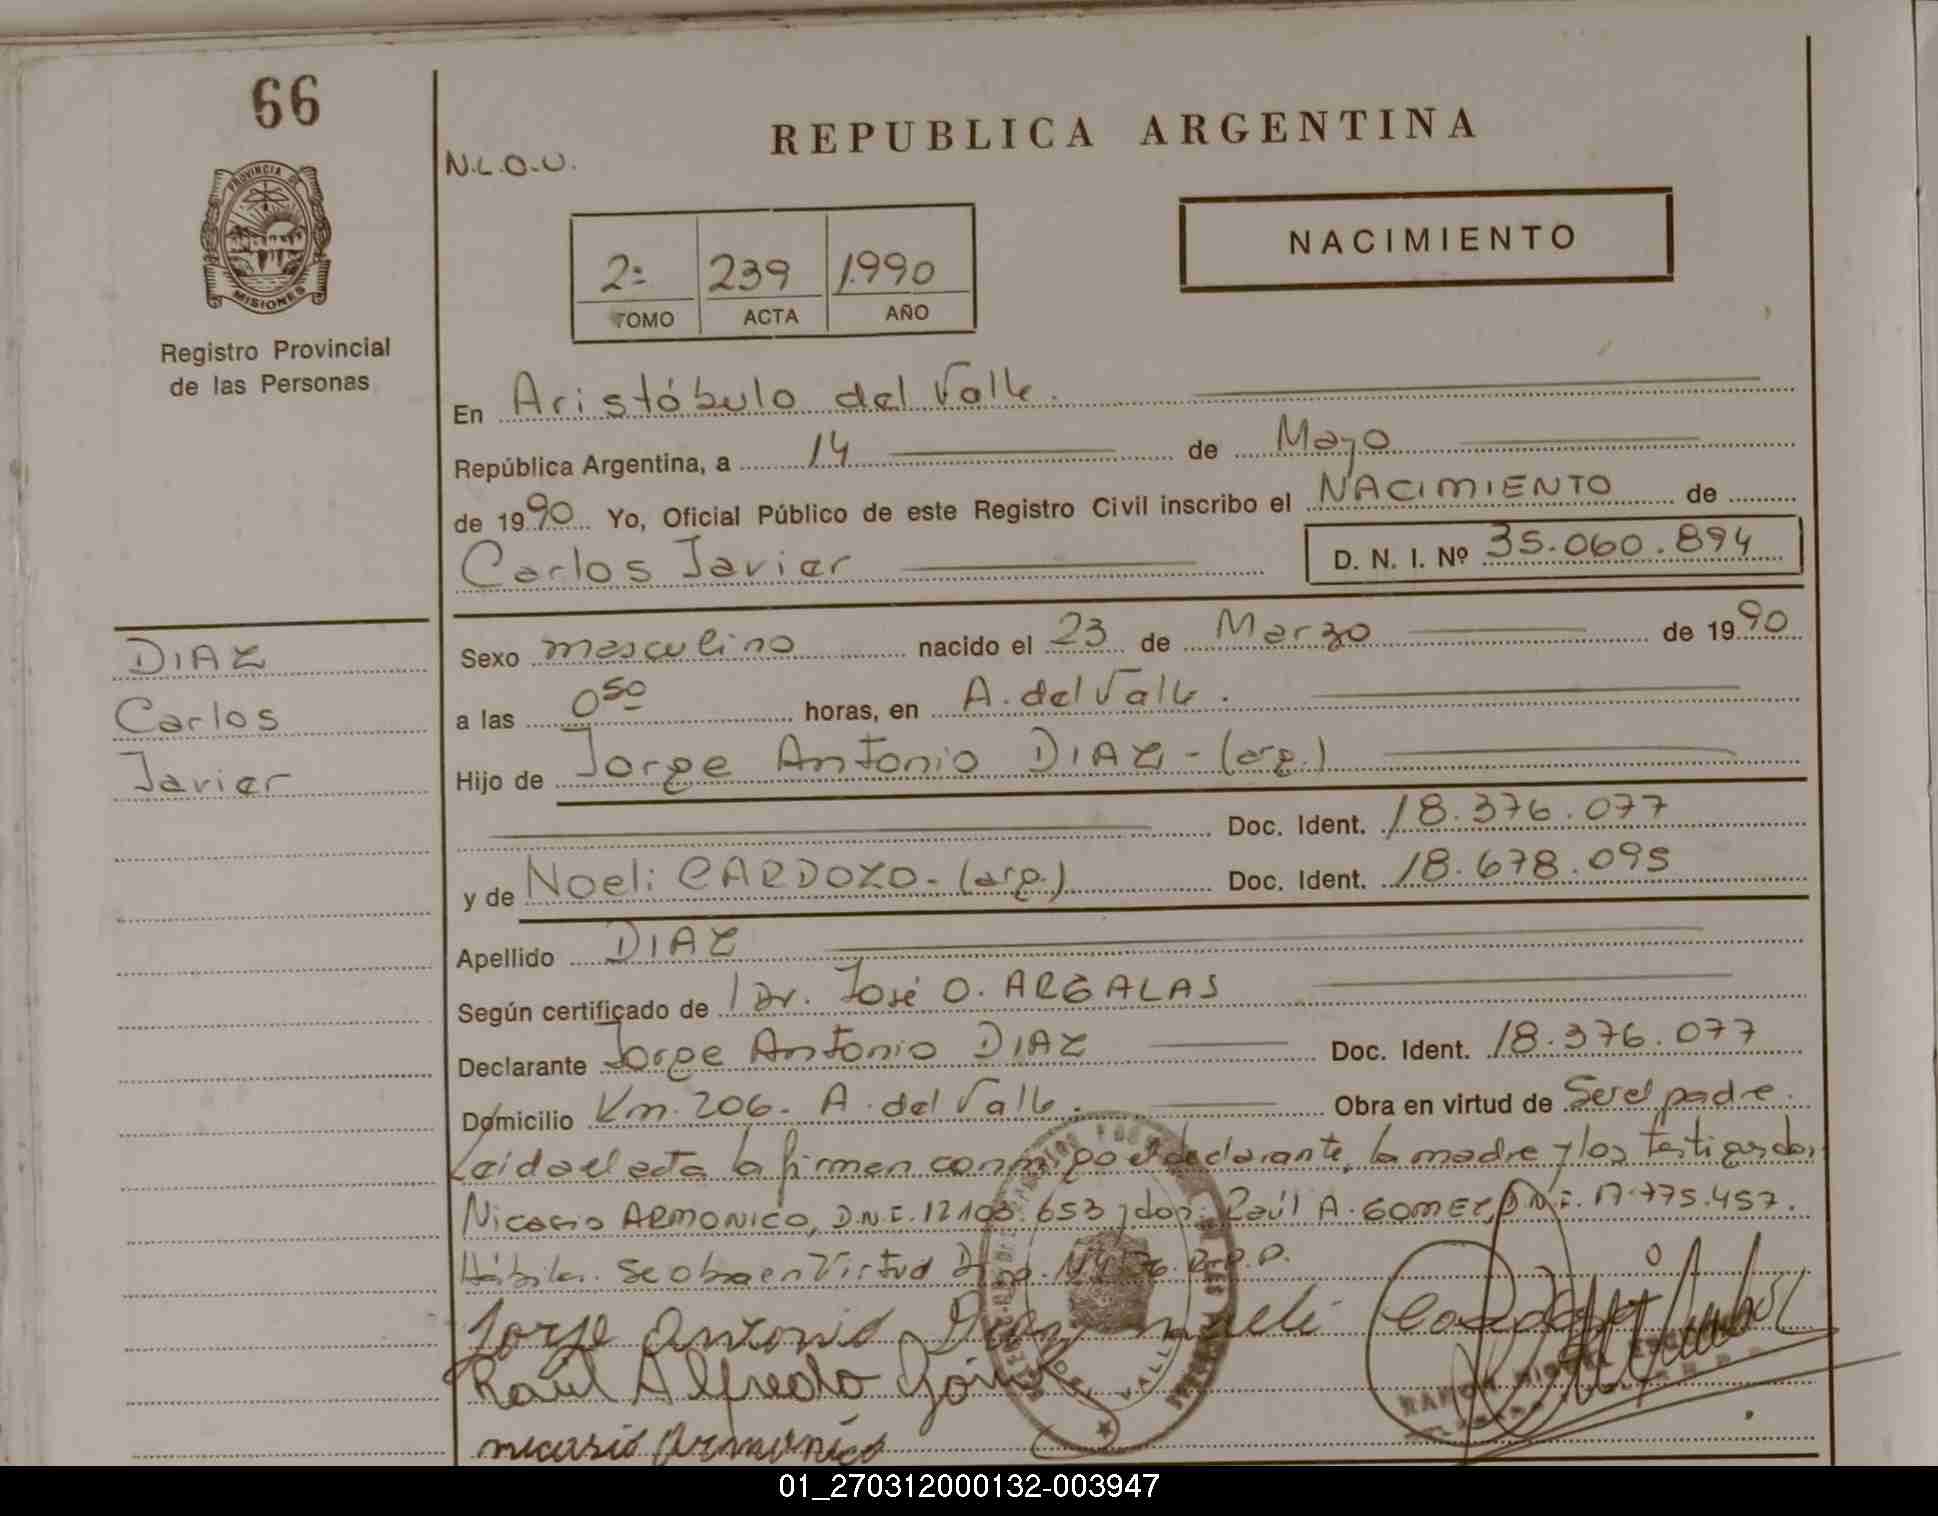 66
N.L.O.U.
REPUBLICA ARGENTINA
PROVINCIA DE
MISIONES
Registro Provincial
de las Personas
2º 239 1.990
TOMO ACTA AÑO
NACIMIENTO
En Aristóbulo del Valle.
República Argentina, a 14 de Mayo
de 1990 Yo, Oficial Público de este Registro Civil inscribo el NACIMIENTO de
Carlos Javier D. N. I. Nº 35.060.894
DIAZ
Carlos
Javier
Sexo masculino nacido el 23 de Marzo de 1990
a las 0 50 horas, en A. del Valle.
Hijo de Jorge Antonio DIAZ - (arg.)
Doc. Ident. 18.376.077
y de Noeli CARDOZO - (arg.) Doc. Ident. 18.678.095
Apellido DIAZ
Según certificado de Dr. José O. ARGALAS
Declarante Jorge Antonio DIAZ Doc. Ident. 18.376.077
Domicilio Km. 206 - A. del Valle. Obra en virtud de Ser el padre.
Leída el acta la firman conmigo el declarante, la madre y los testigos don
Nicasio ARMONICO, D.N.I. 12.103.653 y don Raúl A. GOMEZ, D.N.I. 17.775.457.
Hábiles. Se obra en Virtud
Jorge Antonio Diaz Noeli Cardozo
Raúl Alfredo Gómez
nicasio Armonico
VALLE
RAMON
01_270312000132-003947